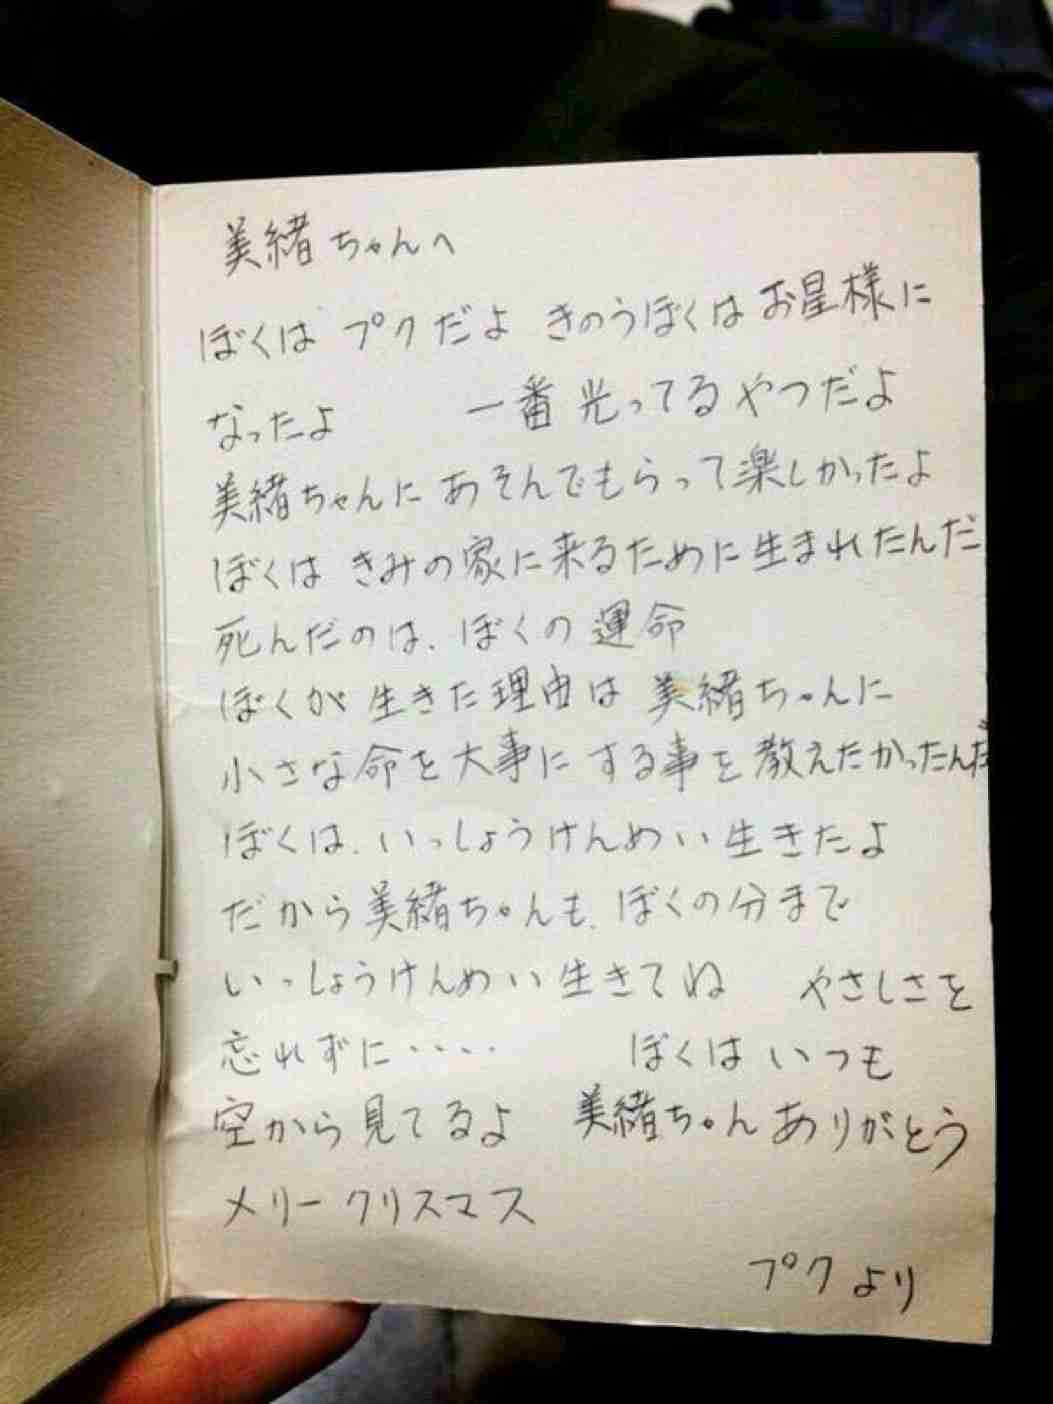 美緒ちゃんへ
ぼくは プクだよ きのうぼくは お星様に
なったよ 一番光ってるやつだよ
美緒ちゃんに あそんでもらって楽しかったよ
ぼくは きみの家に来るために生まれたんだ
死んだのは、ぼくの運命
ぼくが生きた理由は 美緒ちゃんに
小さな命を大事にする事を教えたかったんだ
ぼくは、いっしょうけんめい生きたよ
だから美緒ちゃんも、ぼくの分まで
いっしょうけんめい生きてね やさしさを
忘れずに・・・・ ぼくは いつも
空から見てるよ 美緒ちゃん ありがとう
メリークリスマス
プクより